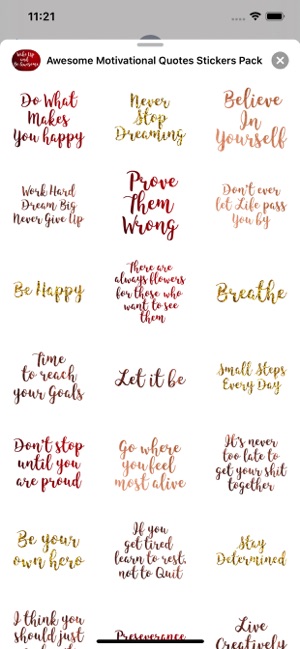 11:21
Wake Up
and
Be Awesome
Awesome Motivational Quotes Stickers Pack
Do What
Makes
You happy
Never
Stop
Dreaming
Believe
In
Yourself
Work Hard
Dream Big
Never Give Up
Prove
Them
Wrong
Don't ever
let Life pass
You by
Be Happy
There are
always flowers
for those who
want to see
them
Breathe
Time
to reach
your Goals
Let it be
Small Steps
Every Day
Don't stop
until you
are proud
Go where
you feel
most alive
It's never
too late to
get your shit
together
Be your
own hero
If you
get tired
learn to rest,
not to Quit
Stay
Determined
I think you
should just
Preseverance
Live
Creatively